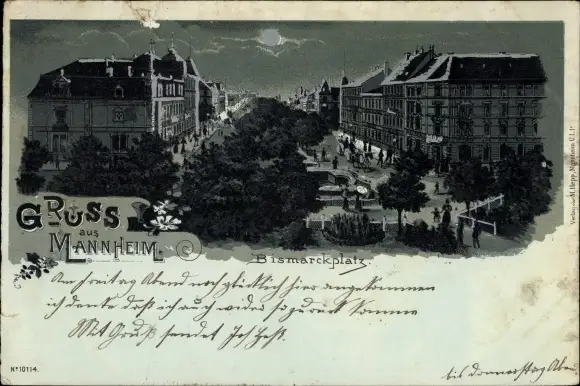 Gruss
aus
Mannheim.
©
Bismarckplatz.
Verlag von M. Hepp, Mannheim U 1, 1ᵃ
Am freitag Abend noch glücklich hier angekommen
ich denke daß ich auch wider so gerent komme
Mit Gruß sendet Joh
bis Donnerstag Aben
Nº 10114.